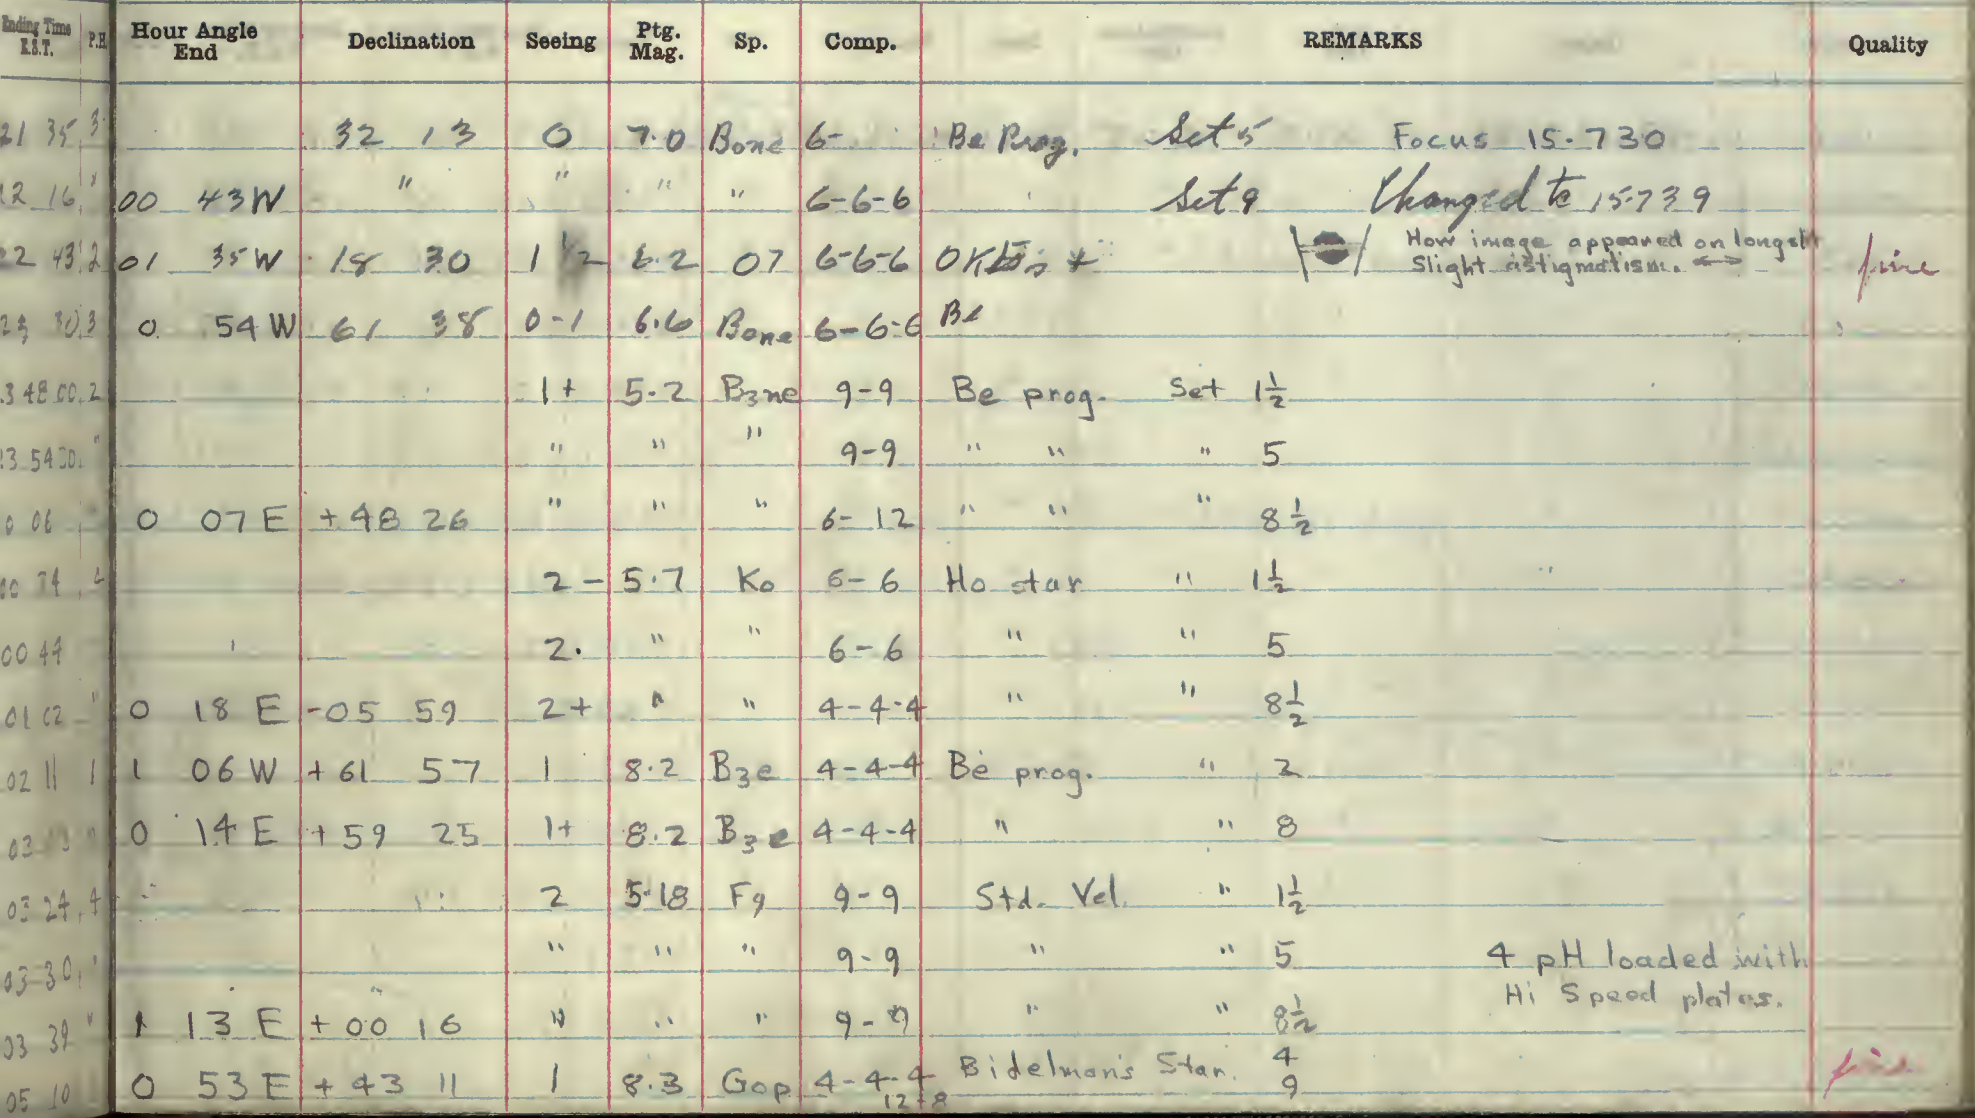 Ending Time E.S.T. P.H. Hour Angle End Declination Seeing Ptg. Mag. Sp. Comp. REMARKS Quality
21 35 3 32 13 0 7.0 Bone 6- Be Prog. Set 5 Focus 15.730
12 16 " 00 43 W " " " " 6-6-6 Set 9 Changed to 15.739
22 43 2 01 35 W 18 30 1 1/2 6.2 07 6-6-6 How image appeared on longslit Slight astigmatism. ↔ fine
23 30 3 0 54 W 61 38 0-1 6.6 Bone 6-6-6 Be
3 48 00 2 1+ 5.2 B3ne 9-9 Be prog. Set 1 1/2
3 54 30 " " " " 9-9 " " " 5
0 06 0 07 E +48 26 " " " 6-12 " " " 8 1/2
2- 5.7 K0 6-6 Ho star " 1 1/2
00 44 2. " " 6-6 " " 5
01 02 " 0 18 E -05 59 2+ " " 4-4-4 " " 8 1/2
02 11 1 1 06 W +61 57 1 8.2 B3e 4-4-4 Be prog. " 2
03 13 " 0 14 E +59 25 1+ 8.2 B3e 4-4-4 " " 8
03 24 4 2 5.18 F9 9-9 Std. Vel. " 1 1/2
03 30 " " " " 9-9 " " 5 4 pH loaded with
Hi Speed plates.
03 39 " 1 13 E +00 16 " " " 9-9 " " 8 1/2
05 10 0 53 E +43 11 1 8.3 Gop 4-4-4 Bidelman's Star. 4
12-8 9 fine